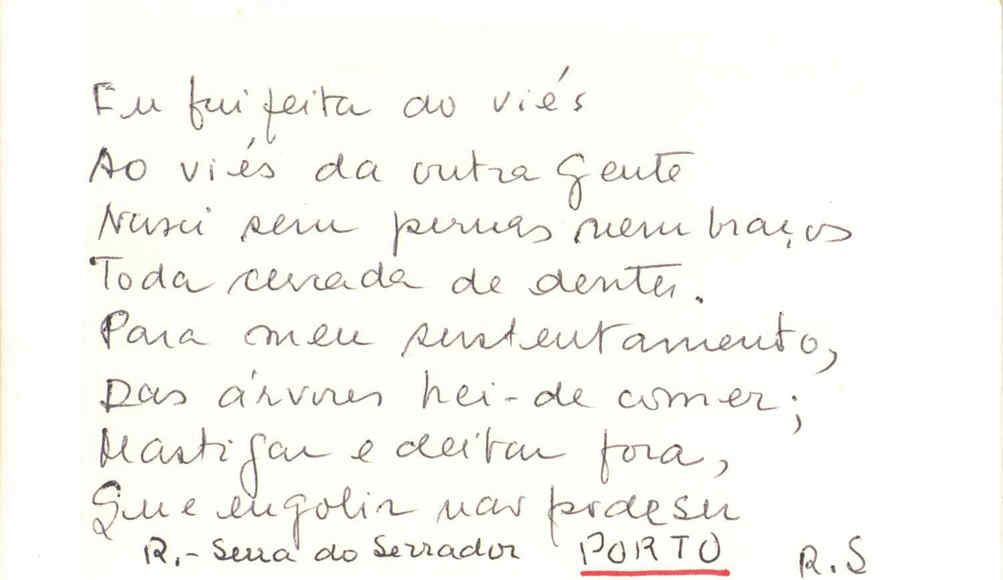 Eu fui feita ao viés
Ao viés da outra Gente
Nasci sem pernas nem braços
Toda cerrada de dentes.
Para meu sustentamento,
Das árvores hei-de comer;
Mastigar e deitar fora,
Que engolir nao pode ser
R.- Serra do Serrador PORTO R.S